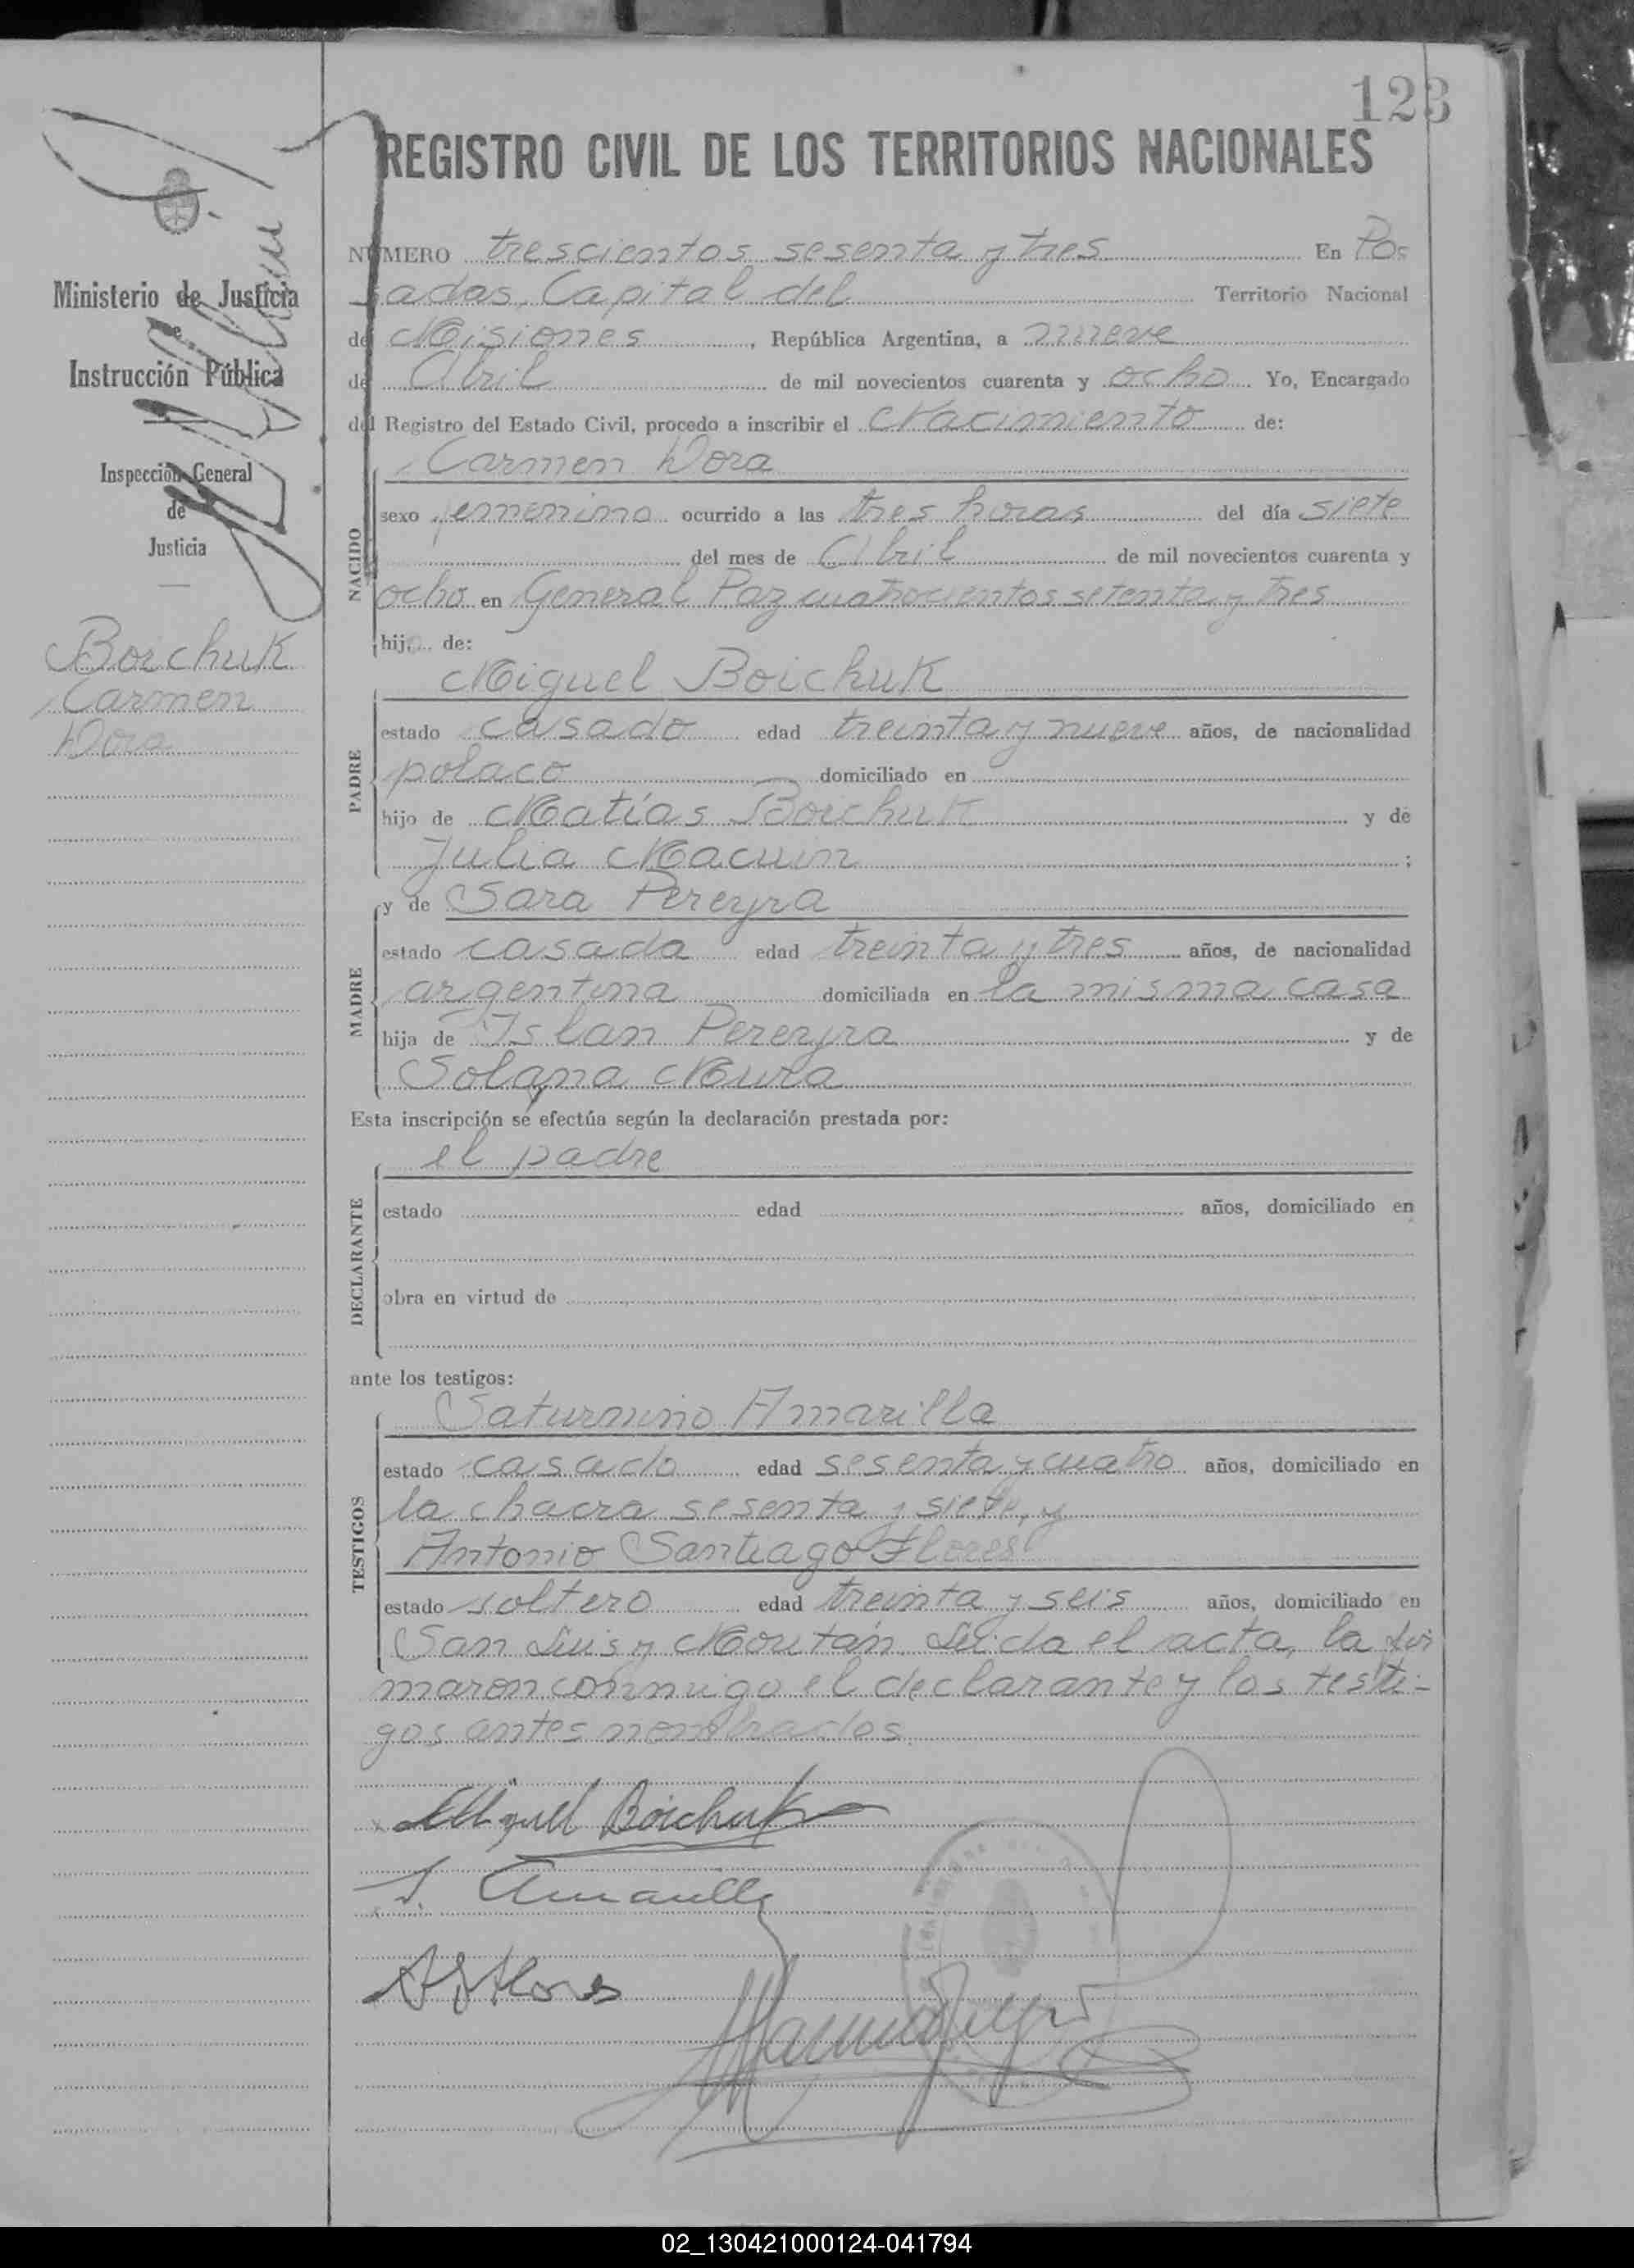 123
REGISTRO CIVIL DE LOS TERRITORIOS NACIONALES
Ministerio de Justicia
e
Instrucción Pública
Inspección General
de
Justicia
Boichuk
Carmen
Dora
NÚMERO trescientos sesenta y tres En Pos
adas, Capital del Territorio Nacional
de Misiones, República Argentina, a nueve
de Abril de mil novecientos cuarenta y ocho Yo, Encargado
del Registro del Estado Civil, procedo a inscribir el Nacimiento de:
NACIDO
Carmen Dora
sexo femenino ocurrido a las tres horas del día siete
del mes de Abril de mil novecientos cuarenta y
ocho en General Paz cuatrocientos setenta y tres
hija de:
PADRE
Miguel Boichuk
estado casado edad treinta y nueve años, de nacionalidad
polaco domiciliado en
hijo de Matías Boichuk y de
Julia Macuin ;
MADRE
y de Sara Pereyra
estado casada edad treinta y tres años, de nacionalidad
argentina domiciliada en la misma casa
hija de Islan Pereyra y de
Solana Mura
Esta inscripción se efectúa según la declaración prestada por:
DECLARANTE
el padre
estado edad años, domiciliado en
obra en virtud de
ante los testigos:
TESTIGOS
Saturnino Amarilla
estado casado edad sesenta y cuatro años, domiciliado en
la chacra sesenta y siete, y
Antonio Santiago Flores
estado soltero edad treinta y seis años, domiciliado en
San Luis y Moután. Leida el acta, la fir
maron conmigo el declarante y los testi-
gos antes nombrados.
Miguel Boichuk
S. Amarilla
A S Flores
02_130421000124-041794